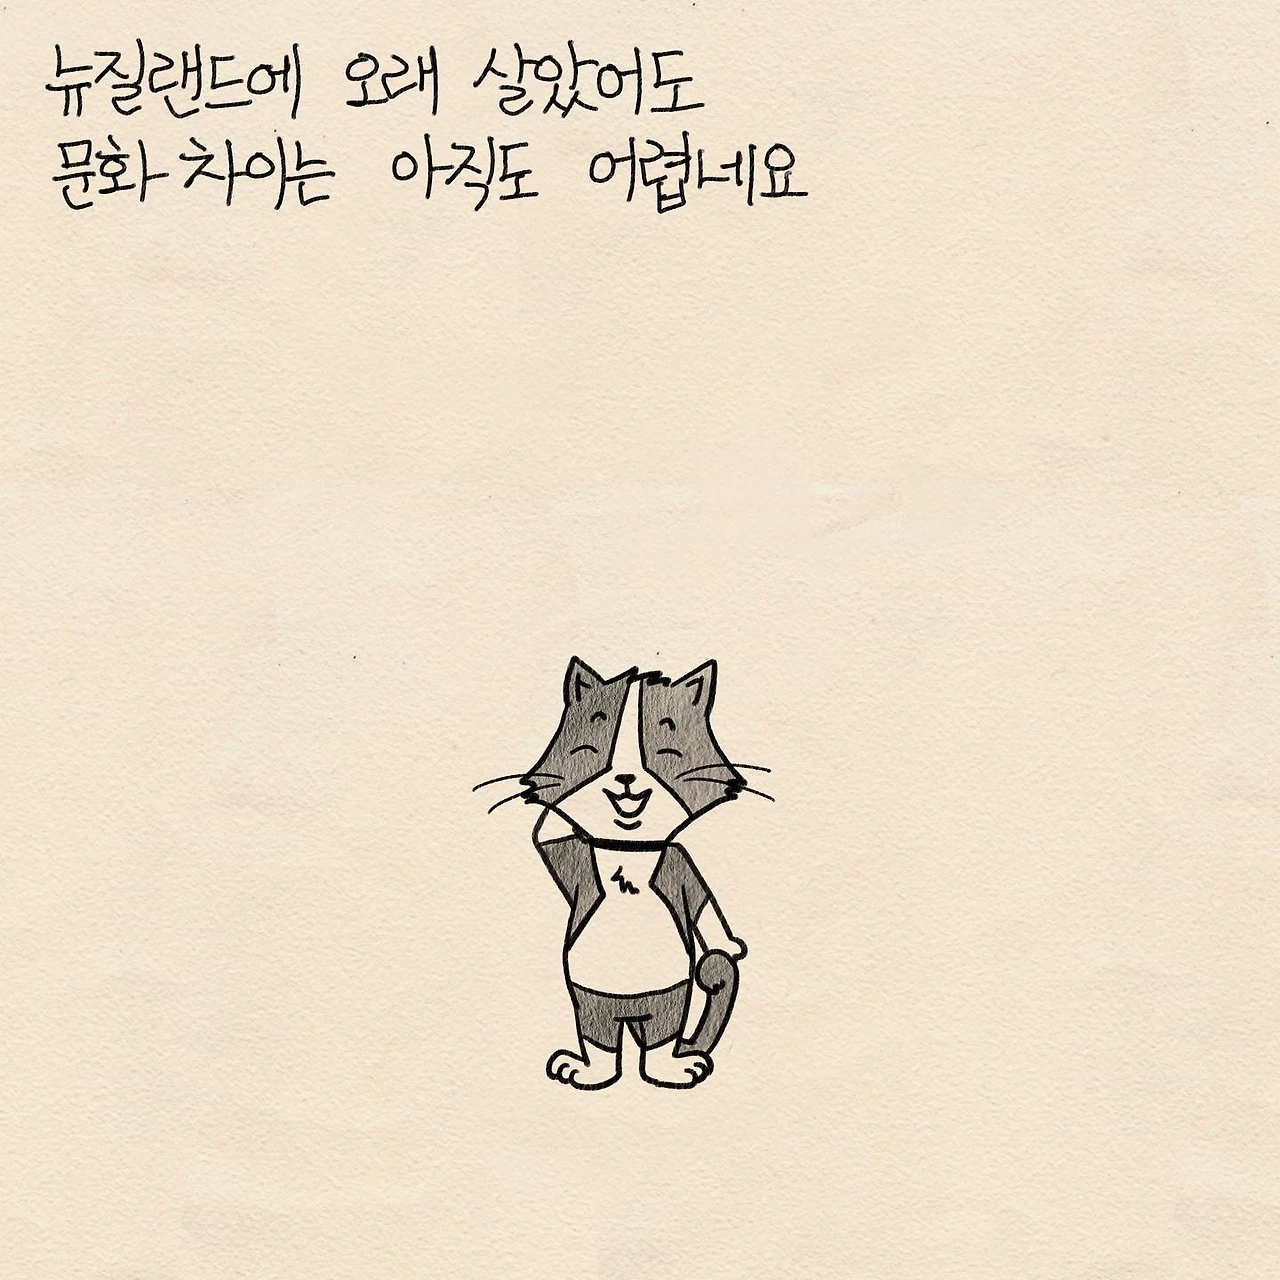 뉴질랜드에 오래 살았어도
문화 차이는 아직도 어렵네요